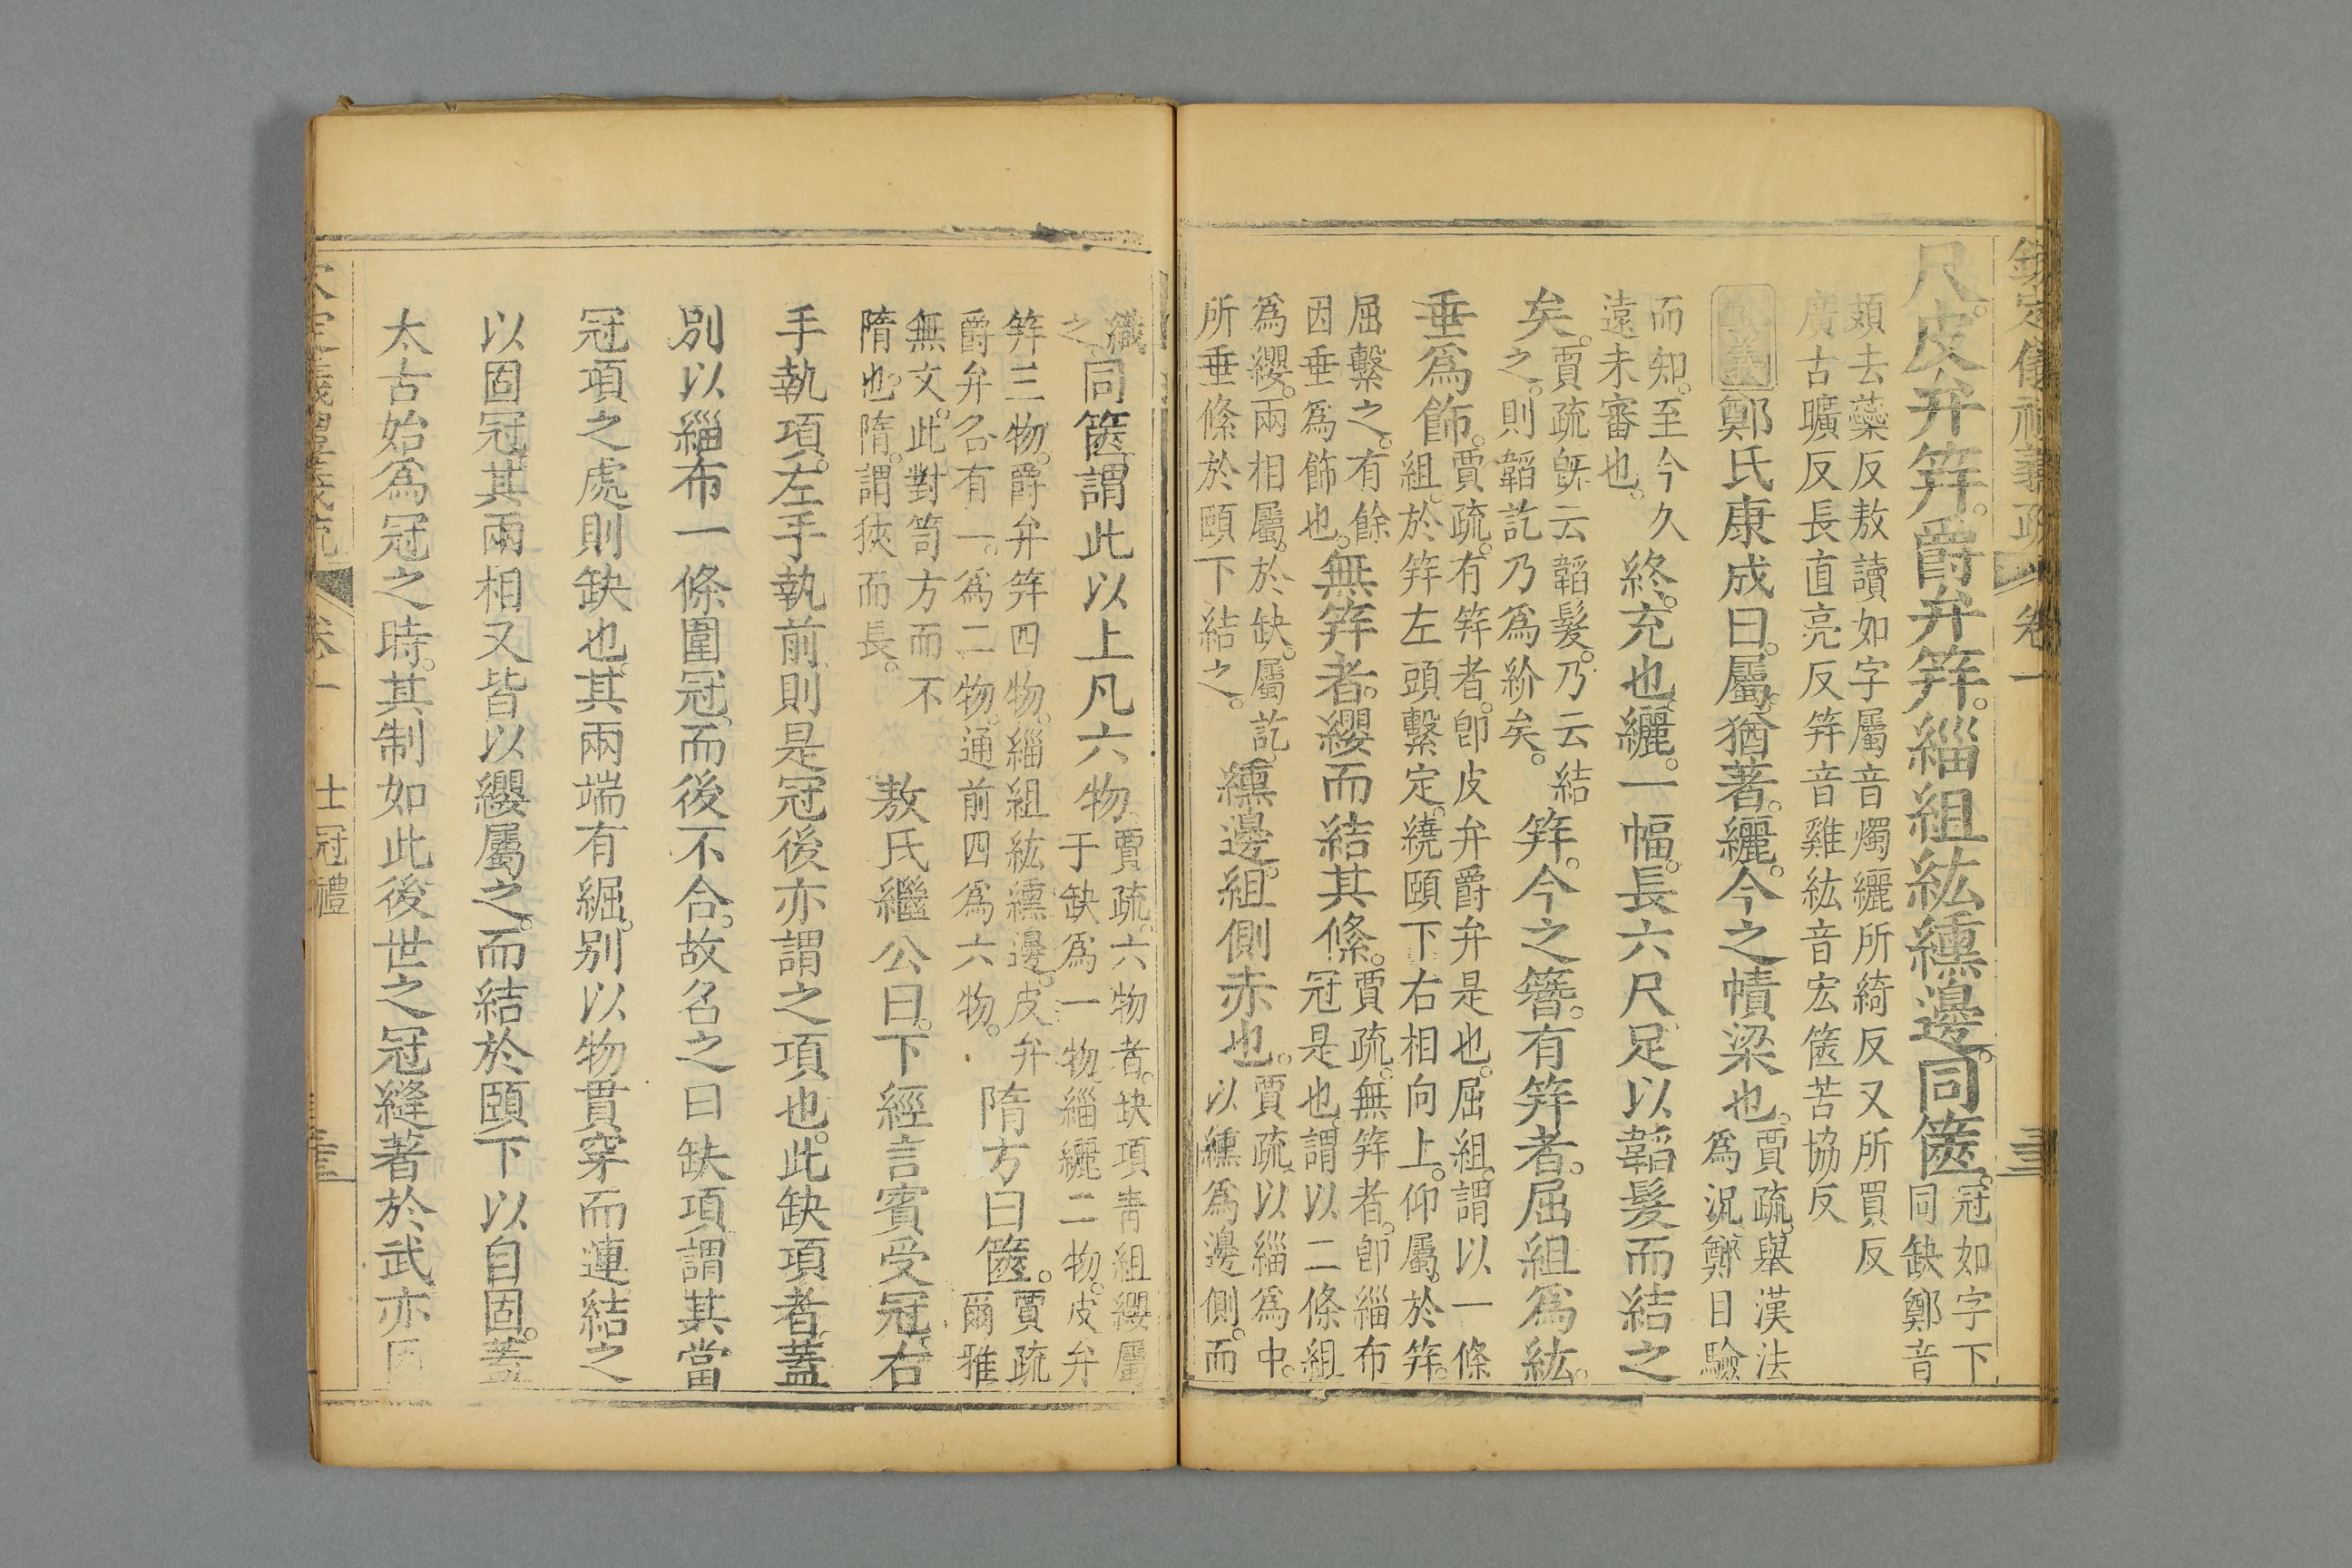 欽定儀禮義疏 卷一
尺。皮弁笄。爵弁笄。緇組紘纁邊。同篋。冠如字下
同缺鄭音
頍去蘂反敖讀如字屬音燭纚所綺反又所買反
廣古曠反長直亮反笄音雞紘音宏篋苦協反
鄭氏康成曰。屬。猶著。纚。今之幘梁也。賈疏。舉漢法
爲況。鄭目驗
而知。至今久
遠未審也。終。充也。纚。一幅。長六尺。足以韜髮而結之
矣。賈疏旣云韜髮。乃云結
之。則韜訖乃爲紒矣。笄。今之簪。有笄者。屈組爲紘。
垂爲飾。賈疏。有笄者。卽皮弁爵弁是也。屈組。謂以一條
組。於笄左頭繫定。繞頤下右相向上。仰屬。於笄。
屈繫之。有餘
因垂爲飾也。無笄者。纓而結其絛。賈疏。無笄者。卽緇布
冠是也。謂以二條組
爲纓。兩相屬。於缺。屬訖。
所垂絛於頤下結之。纁邊。組側赤也。賈疏。以緇爲中。
以纁爲邊側。而
織
之。同篋。謂此以上凡六物。賈疏。六物者。缺項青組纓屬
于缺爲一物。緇纚二物。皮弁
笄三物。爵弁笄四物。緇組紘纁邊。皮弁
爵弁各有一。爲二物。通前四爲六物。隋方曰篋。賈疏
爾雅
無文。此對笥方而不
隋也。隋。謂狹而長。敖氏繼公曰。下經言賓受冠。右
手執項。左手執前。則是冠後亦謂之項也。此缺項者。蓋
別以緇布一條圍冠。而後不合。故名之曰缺項。謂其當
冠項之處則缺也。其兩端有緄。别以物貫穿而連結之
以固冠。其兩相又皆以纓屬之。而結於頤下以自固。蓋
太古始爲冠之時。其制如此後世之冠縫著於武亦因
卷一 士冠禮